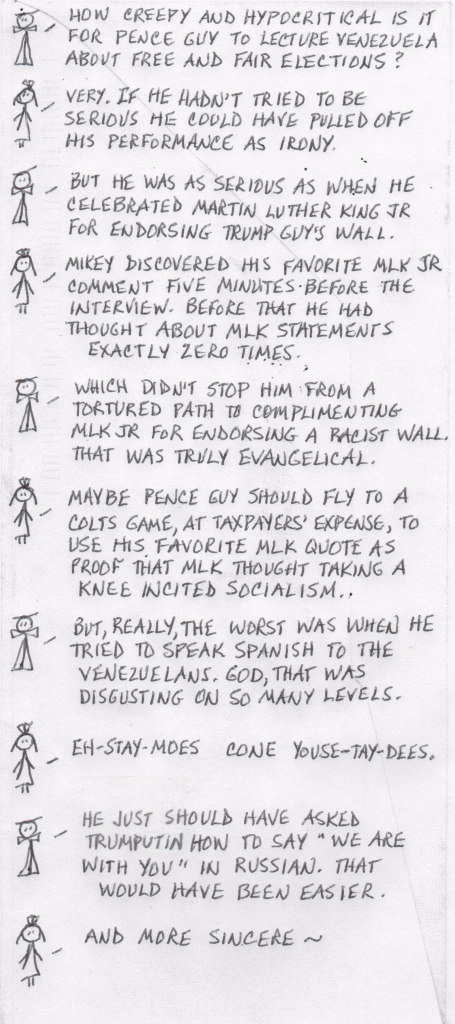 HOW CREEPY AND HYPOCRITICAL IS IT
FOR PENCE GUY TO LECTURE VENEZUELA
ABOUT FREE AND FAIR ELECTIONS?
VERY. IF HE HADN'T TRIED TO BE
SERIOUS HE COULD HAVE PULLED OFF
HIS PERFORMANCE AS IRONY.
BUT HE WAS AS SERIOUS AS WHEN HE
CELEBRATED MARTIN LUTHER KING JR
FOR ENDORSING TRUMP GUY'S WALL.
MIKEY DISCOVERED HIS FAVORITE MLK JR
COMMENT FIVE MINUTES BEFORE THE
INTERVIEW. BEFORE THAT HE HAD
THOUGHT ABOUT MLK STATEMENTS
EXACTLY ZERO TIMES.
WHICH DIDN'T STOP HIM FROM A
TORTURED PATH TO COMPLIMENTING
MLK JR FOR ENDORSING A RACIST WALL.
THAT WAS TRULY EVANGELICAL.
MAYBE PENCE GUY SHOULD FLY TO A
COLTS GAME, AT TAXPAYERS' EXPENSE, TO
USE HIS FAVORITE MLK QUOTE AS
PROOF THAT MLK THOUGHT TAKING A
KNEE INCITED SOCIALISM..
BUT, REALLY, THE WORST WAS WHEN HE
TRIED TO SPEAK SPANISH TO THE
VENEZUELANS. GOD, THAT WAS
DISGUSTING ON SO MANY LEVELS.
EH-STAY-MOES CONE YOUSE-TAY-DEES.
HE JUST SHOULD HAVE ASKED
TRUMPUTIN HOW TO SAY "WE ARE
WITH YOU" IN RUSSIAN. THAT
WOULD HAVE BEEN EASIER.
AND MORE SINCERE ~